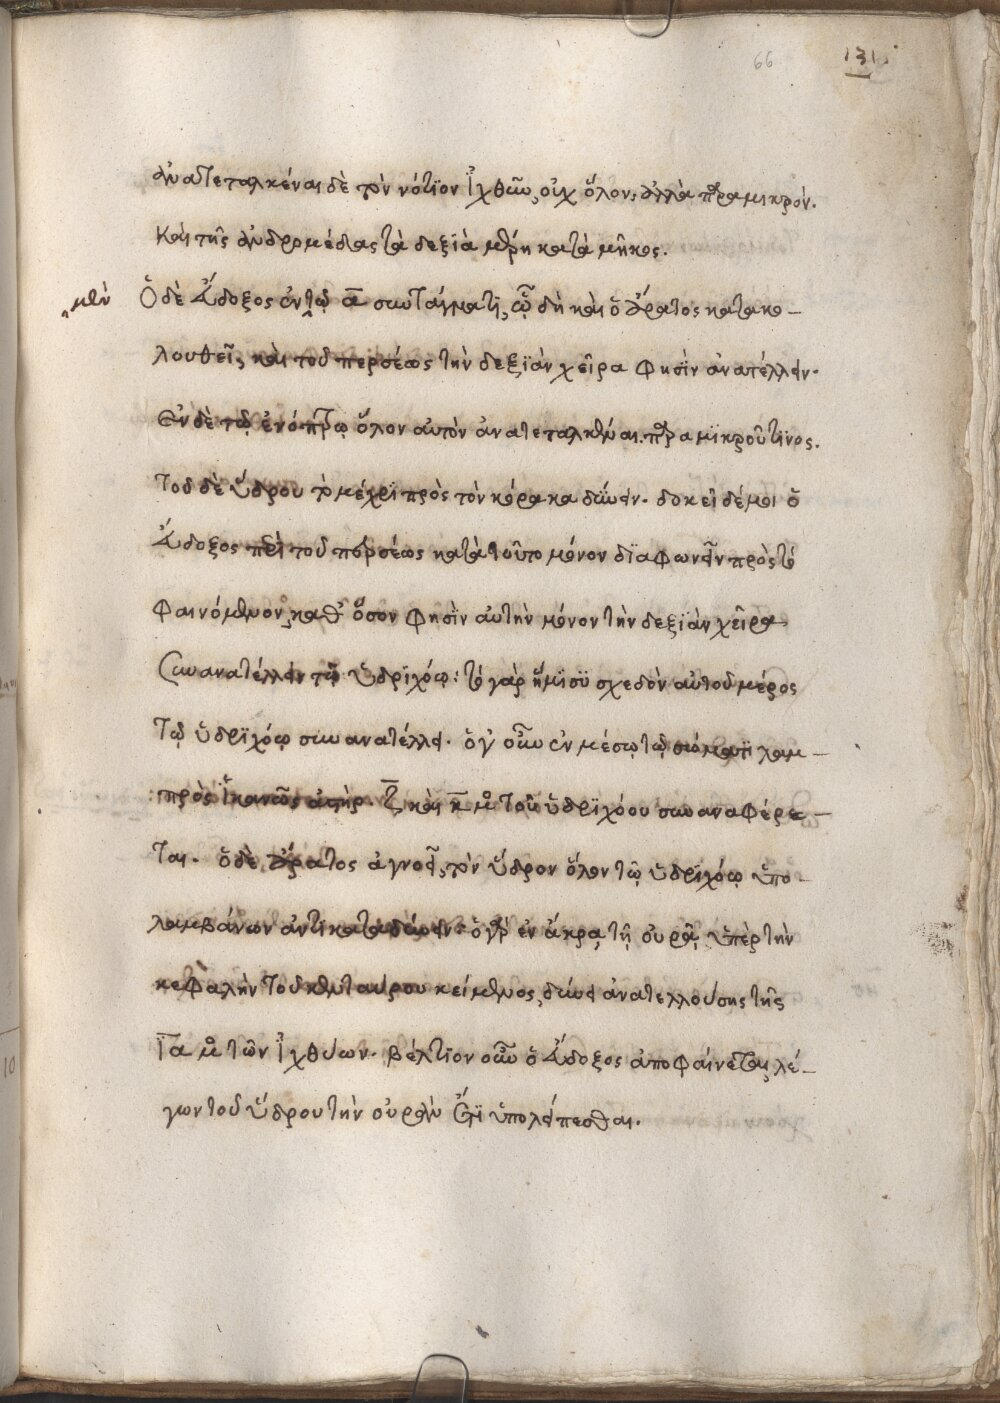 66 131.
ἀνατεταλκέναι δὲ τὸν νότϊον ἰχθῦν, οὐχ ὅλον, ἀλλὰ παρα μικρόν.
Καὶ τῆς ἀνδρομέδας τὰ δεξϊὰ μέρη κατὰ μῆκος.
μὲν Ὁ δὲ Εὔδοξος ἐν τῷ α̅ συντάγματϊ, ᾧ δὴ καὶ ὁ ἄρατος κατακο–
λουθεῖ, καὶ τοῦ περσέως τὴν δεξϊὰν χεῖρα φησὶν ἀνατέλλειν.
Ἐν δὲ τῷ ἐνόπτρῳ ὅλον αὐτὸν ἀνατεταλκέναι παρα μϊκροῦ τϊνος.
Τοῦ δὲ ὕδρου τὸ μέχρϊ πρὸς τὸν κόρακα δύνειν. δοκεῖ δέ μοι ὁ
Εὔδοξος περὶ τοῦ περσέως κατὰ τοῦτο μόνον δϊαφωνεῖν πρὸς τὸ
φαινόμενον, καθ' ὅσον φησὶν αὐτὴν μόνον τὴν δεξϊὰν χεῖρα
συνανατέλλειν τῷ ὑδρϊχόῳ: τὸ γὰρ ἥμϊσϋ σχεδὸν αὐτοῦ μέρος
Τῷ ὑδρϊχόῳ συνανατέλλει. ὁ γοῦν ἐν μέσῳ τῷ σώματϊ λαμ–
πρὸς ἱκανῶς ἀστὴρ. ζ̅ καὶ κ̅ μο τοῦ ὑδρϊχόου συναναφέρε–
ται. ὁ δὲ ἄρατος ἀγνοεῖ, τὸν ὕδρον ὅλον τῷ ὑδρϊχόῳ ὑπο–
λαμβάνων ἀντϊκαταδύνειν: ὁ γὰρ ἐν ἄκρᾳ τῇ οὐρᾷ, ὑπὲρ τὴν
κεφαλὴν τοῦ κενταύρου κείμενος, δύνει ἀνατελλούσης τῆς
ι̅α μο τῶν ἰχθύων. βέλτϊον οὖν ὁ Εὔδοξος ἀποφαίνεται, λέ–
γων τοῦ ὕδρου τὴν οὐρὰν ἔτϊ ὑπολείπεσθαι.